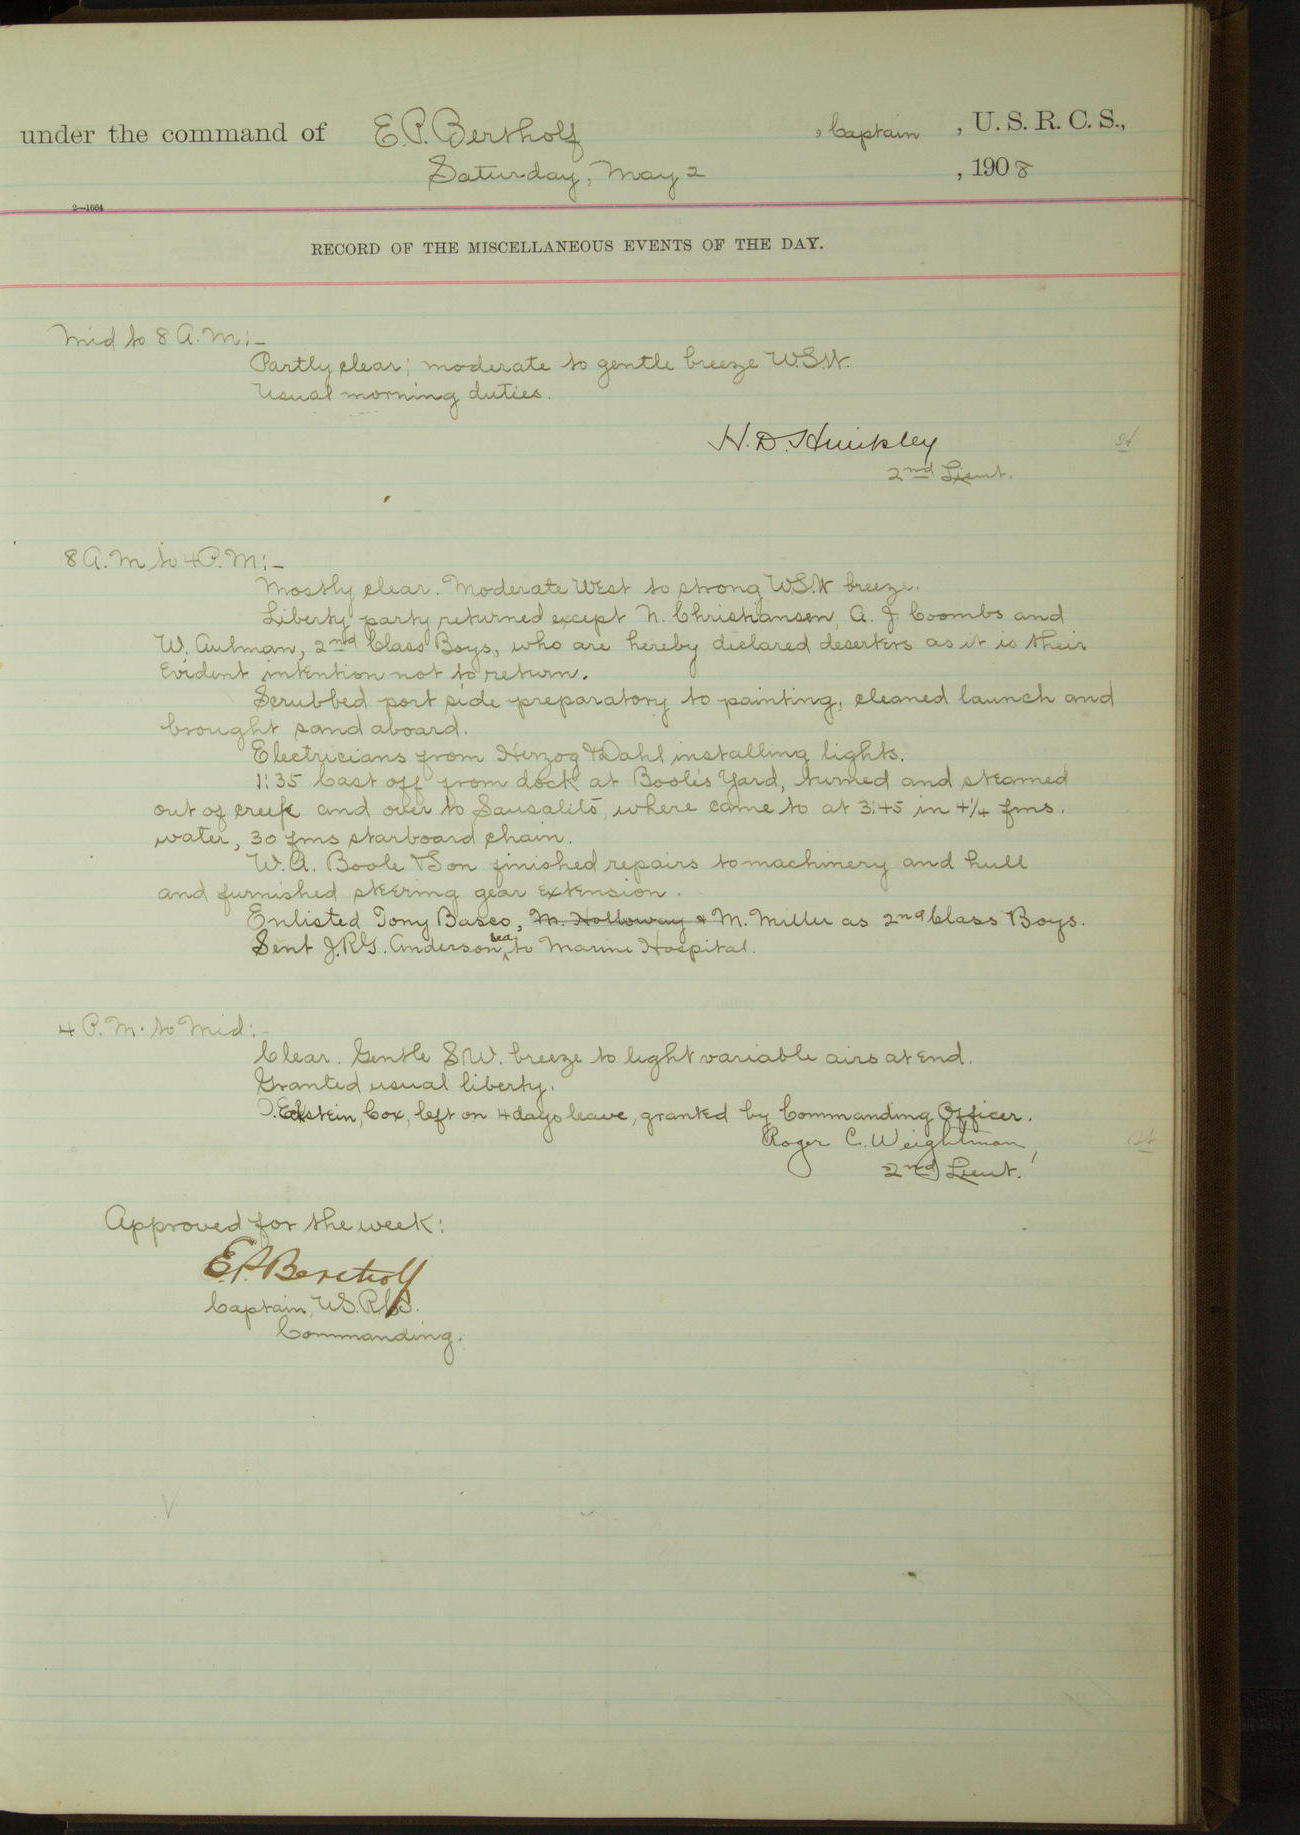 under the command of E.P. Bertholf, Captain, U. S. R. C. S.,
Saturday, May 2, 1908
2—1664
RECORD OF THE MISCELLANEOUS EVENTS OF THE DAY.
Mid to 8 A.M:-
Partly clear; moderate to gentle breeze W.S.W.
Usual morning duties.
H. D. Hinckley
2nd Lieut.
8 A.M to 4 P.M:-
Mostly clear. Moderate West to strong W.S.W breeze.
Liberty party returned except N. Christiansen, A. J Coombs and
W. Aulman, 2nd Class Boys, who are hereby declared deserters as it is their
evident intention not to return.
Scrubbed port side preparatory to painting, cleaned launch and
brought sand aboard.
Electricians from Herzog & Dahl installing lights.
1:35 Cast off from dock at Boole's Yard, turned and steamed
out of creek and over to Sausalito, where came to at 3:45 in 4 1/4 fms.
water, 30 fms starboard chain.
W.A. Boole & Son finished repairs to machinery and hull
and furnished steering gear extension.
Enlisted Tony Basco, M. Holloway & M. Miller as 2nd Class Boys.
Sent J.R.G. Anderson, sea, to Marine Hospital.
4 P.M. to Mid:-
Clear. Gentle S.W. breeze to light variable airs at end.
Granted usual liberty.
Eckstein, Cox, left on 4 days leave, granted by Commanding Officer.
Roger C. Weightman,
2nd Lieut.
Approved for the week:
E.P. Bertholf
Captain, U.S.R.C.S.
Commanding.